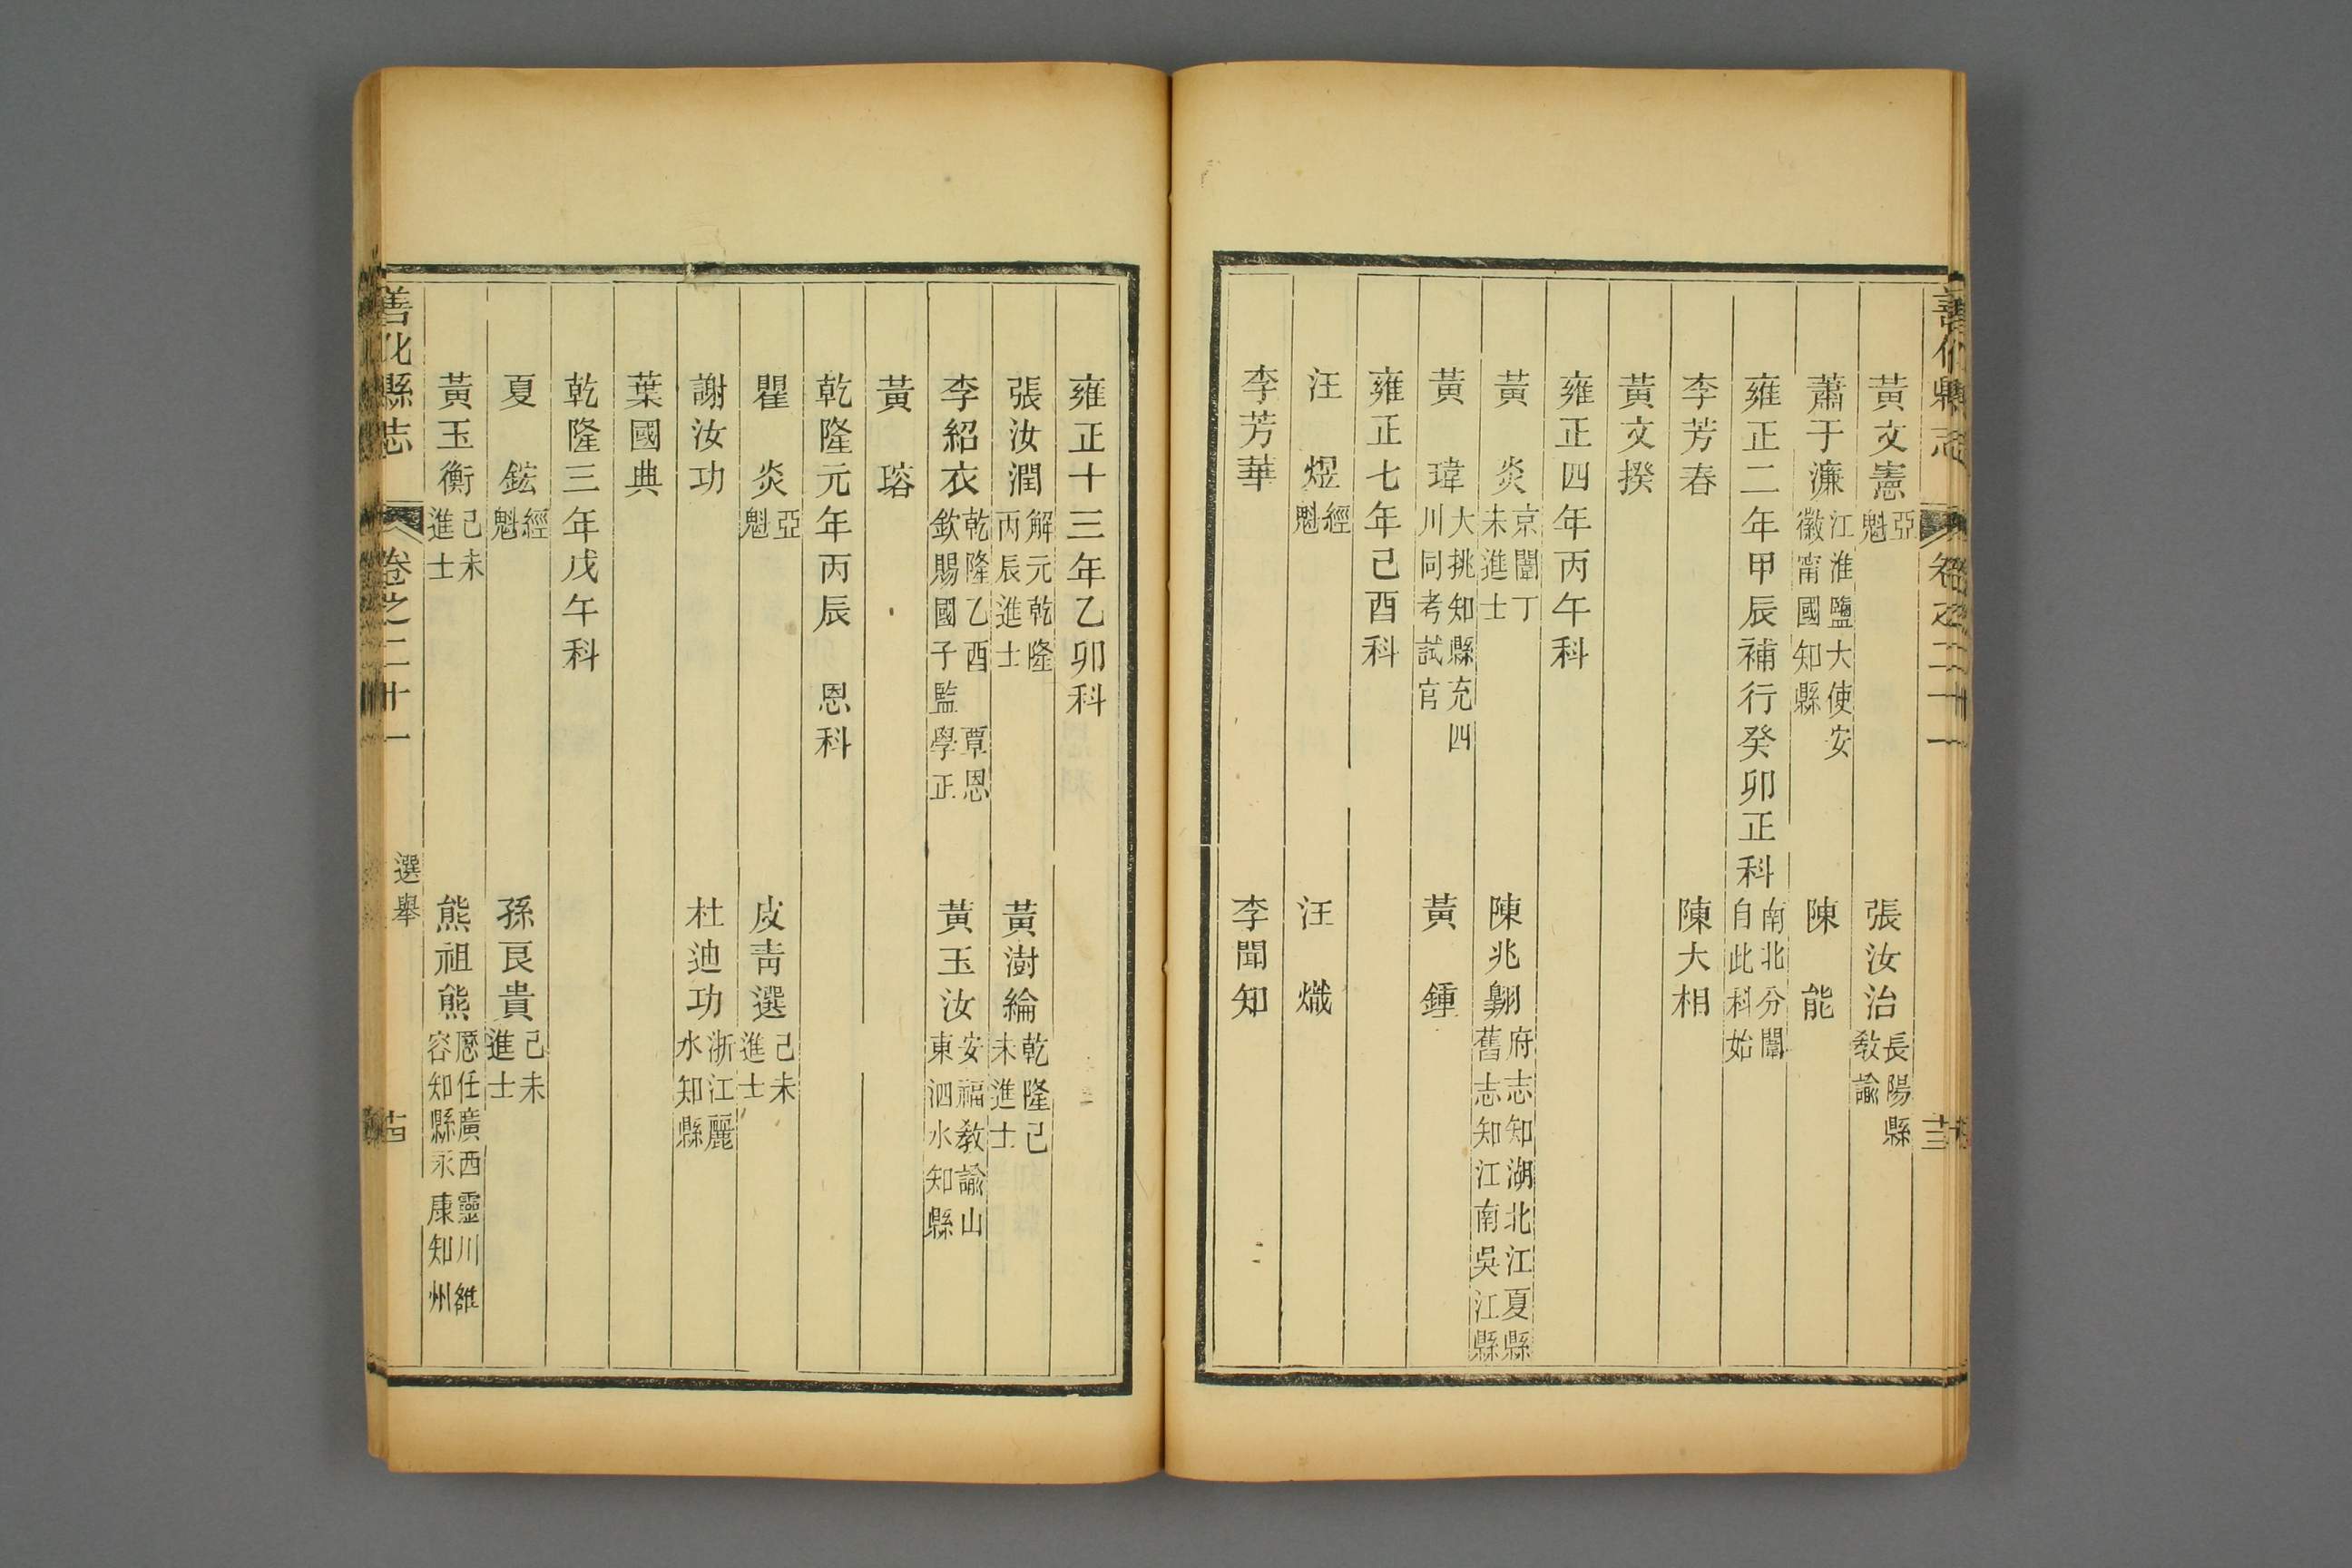 善化縣志 卷之二十一
黃文憲 亞魁 張汝治 長陽縣教諭
蕭于濂 江淮鹽大使安徽甯國知縣 陳能
雍正二年甲辰補行癸卯正科 南北分闈自此科始
李芳春 陳大相
黃文揆
雍正四年丙午科
黃炎 京闈丁未進士 陳兆翺 府志知湖北江夏縣舊志知江南吳江縣
黃瑋 大挑知縣充四川同考試官 黃鍾
雍正七年己酉科
汪煜 經魁 汪熾
李芳華 李聞知
雍正十三年乙卯科
張汝潤 解元乾隆丙辰進士 黃澍綸 乾隆己未進士
李紹衣 乾隆乙酉覃恩欽賜國子監學正 黃玉汝 安福教諭山東泗水知縣
黃瑢
乾隆元年丙辰恩科
瞿炎 亞魁 皮靑選 己未進士
謝汝功 杜迪功 浙江麗水知縣
葉國典
乾隆三年戊午科
夏鋐 經魁 孫良貴 己未進士
黃玉衡 己未進士 熊祖熊 歷任廣西靈川雒容知縣永康知州
善化縣志 卷之二十一 選舉 十四